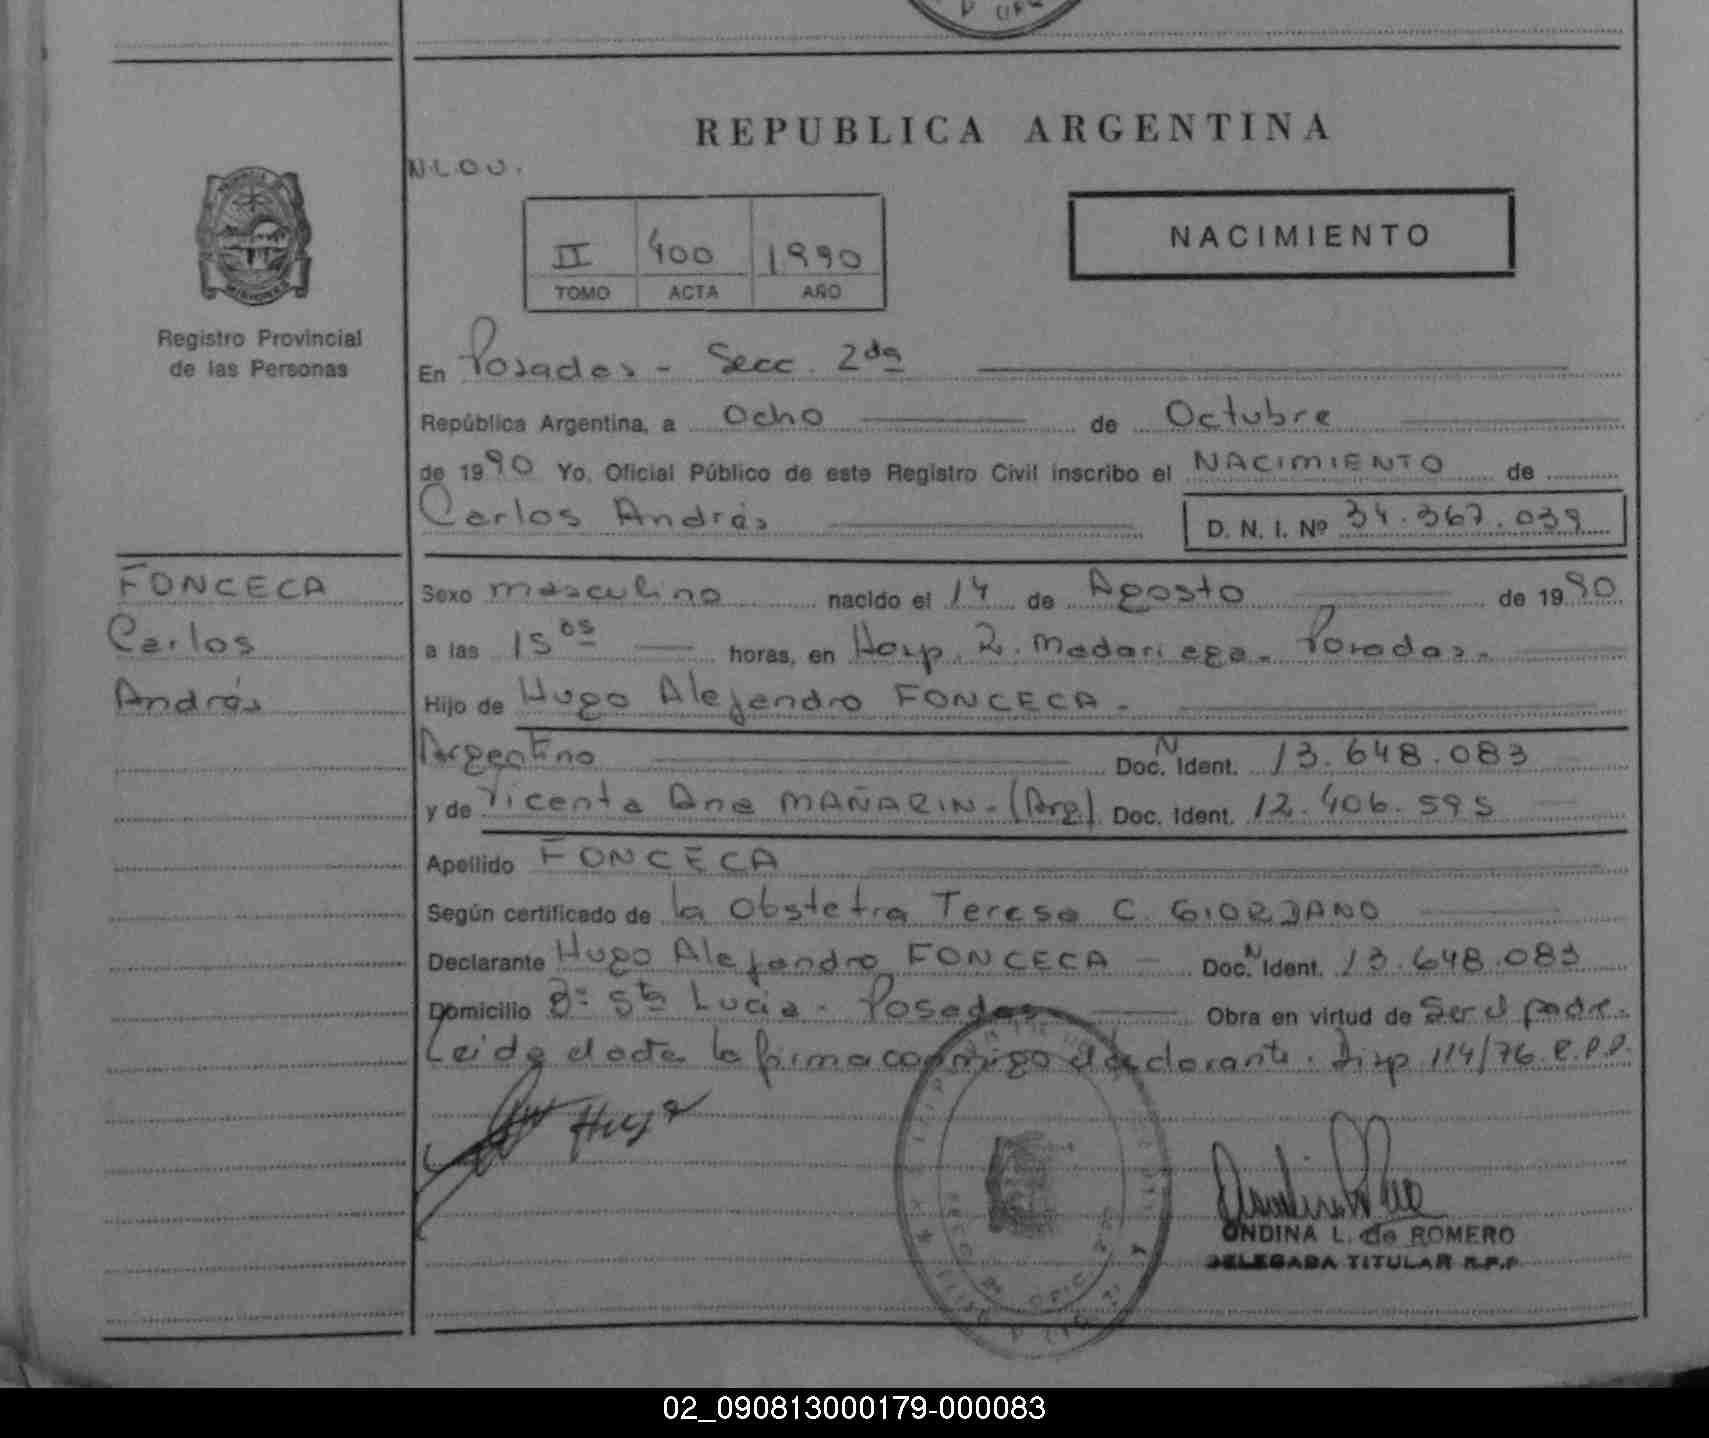 REPUBLICA ARGENTINA
N.L.O.U.
II 400 1990
TOMO ACTA AÑO
NACIMIENTO
Registro Provincial
de las Personas
En Posadas - Secc. 2da
República Argentina, a Ocho de Octubre
de 1990 Yo, Oficial Público de este Registro Civil inscribo el NACIMIENTO de
Carlos Andrés D. N. I. Nº 34.367.039
FONCECA
Carlos
Andrés
Sexo masculino nacido el 14 de Agosto de 1990
a las 15 os horas, en Hosp. R. Madariaga - Posadas.
Hijo de Hugo Alejandro FONCECA.
Argentino Doc. N Ident. 13.648.083
y de Vicenta Ana MAÑARIN - (Arg) Doc. Ident. 12.406.595
Apellido FONCECA
Según certificado de la Obstetra Teresa C. GIORDANO
Declarante Hugo Alejandro FONCECA Doc. N Ident. 13.648.083
Domicilio Bº Sta Lucia - Posadas Obra en virtud de Ser el padre.
Leida el acta la firma conmigo el declarante. Disp 114/76 R.P.P.
Hugo
ONDINA L. de ROMERO
DELEGADA TITULAR R.P.P
02_090813000179-000083